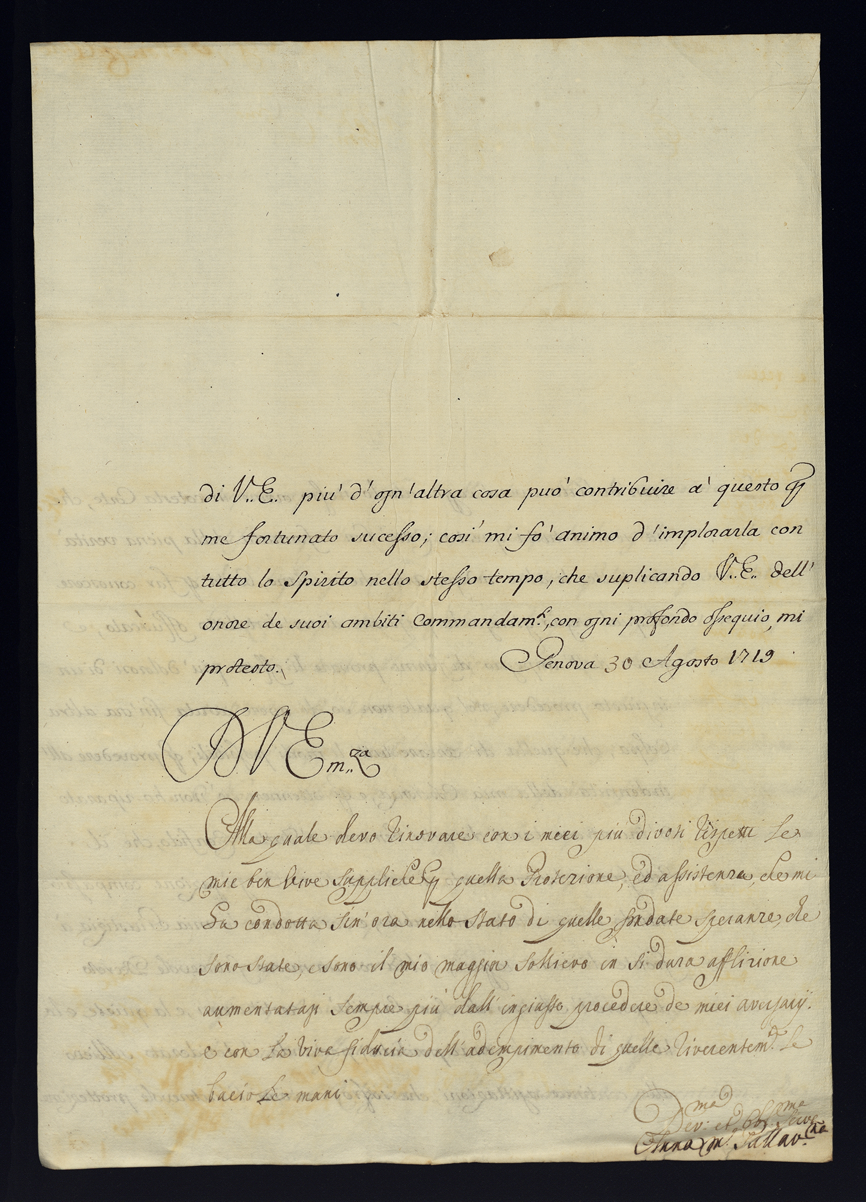 di V. E. più d'ogn'altra cosa può contribuire a' questo
me fortunato sucesso; così mi fò animo d'implorarla con
tutto lo spirito nello stesso tempo, che suplicando V. E. dell'
onore de suoi ambiti Commandam.ti, con ogni profondo ossequio, mi
protesto. Genova 30 Agosto 1719
D V Em.za
Alla quale devo rinovare con i miei più divoti rispetti le
mie ben vive suppliche quella Protezione, ed assistenza, che mi
ha condotta sin'ora nello stato di quelle fondate speranze, che
sono state, e sono il mio maggior sollievo in sì dura afflizione
aumentatasi sempre più dall'ingiusto procedere de miei aversarij.
è con la viva fiducia dell'adempimento di quelle riverentem.te le
bacio le mani
Dev.ma et Obl.ma Serva
Anna M. Pallav.na